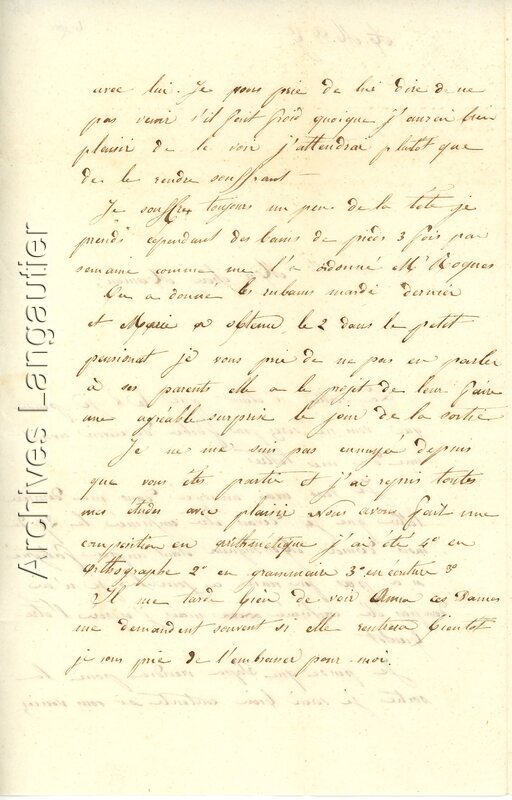 avec lui. Je vous prie de lui dire de ne
pas venir s'il fait froid quoique j'aurai bien
plaisir de le voir j'attendrai plutot que
de le rendre souffrant
Je souffre toujours un peu de la tête je
prends cependant des bains de pieds 3 fois par
semaine comme me l'a ordonné Mr Roques
On a donné les rubans mardi dernier
et Marie a obtenu le 2 dans le petit
pensionat je vous prie de ne pas en parler
à ses parents elle a le projet de leur faire
une agréable surprise le jour de la sortie
Je ne me suis pas ennuyée depuis
que vous êtes partie et j'ai repris toutes
mes études avec plaisir Nous avons fait une
composition en arithmétique j'ai été 4e en
orthographe 2e en grammaire 3e en écriture 3e
Il me tarde bien de voir Anna ces Dames
me demandent souvent si elle rentrera bientot
je vous prie de l'embrasser pour moi.
Archives Langautier